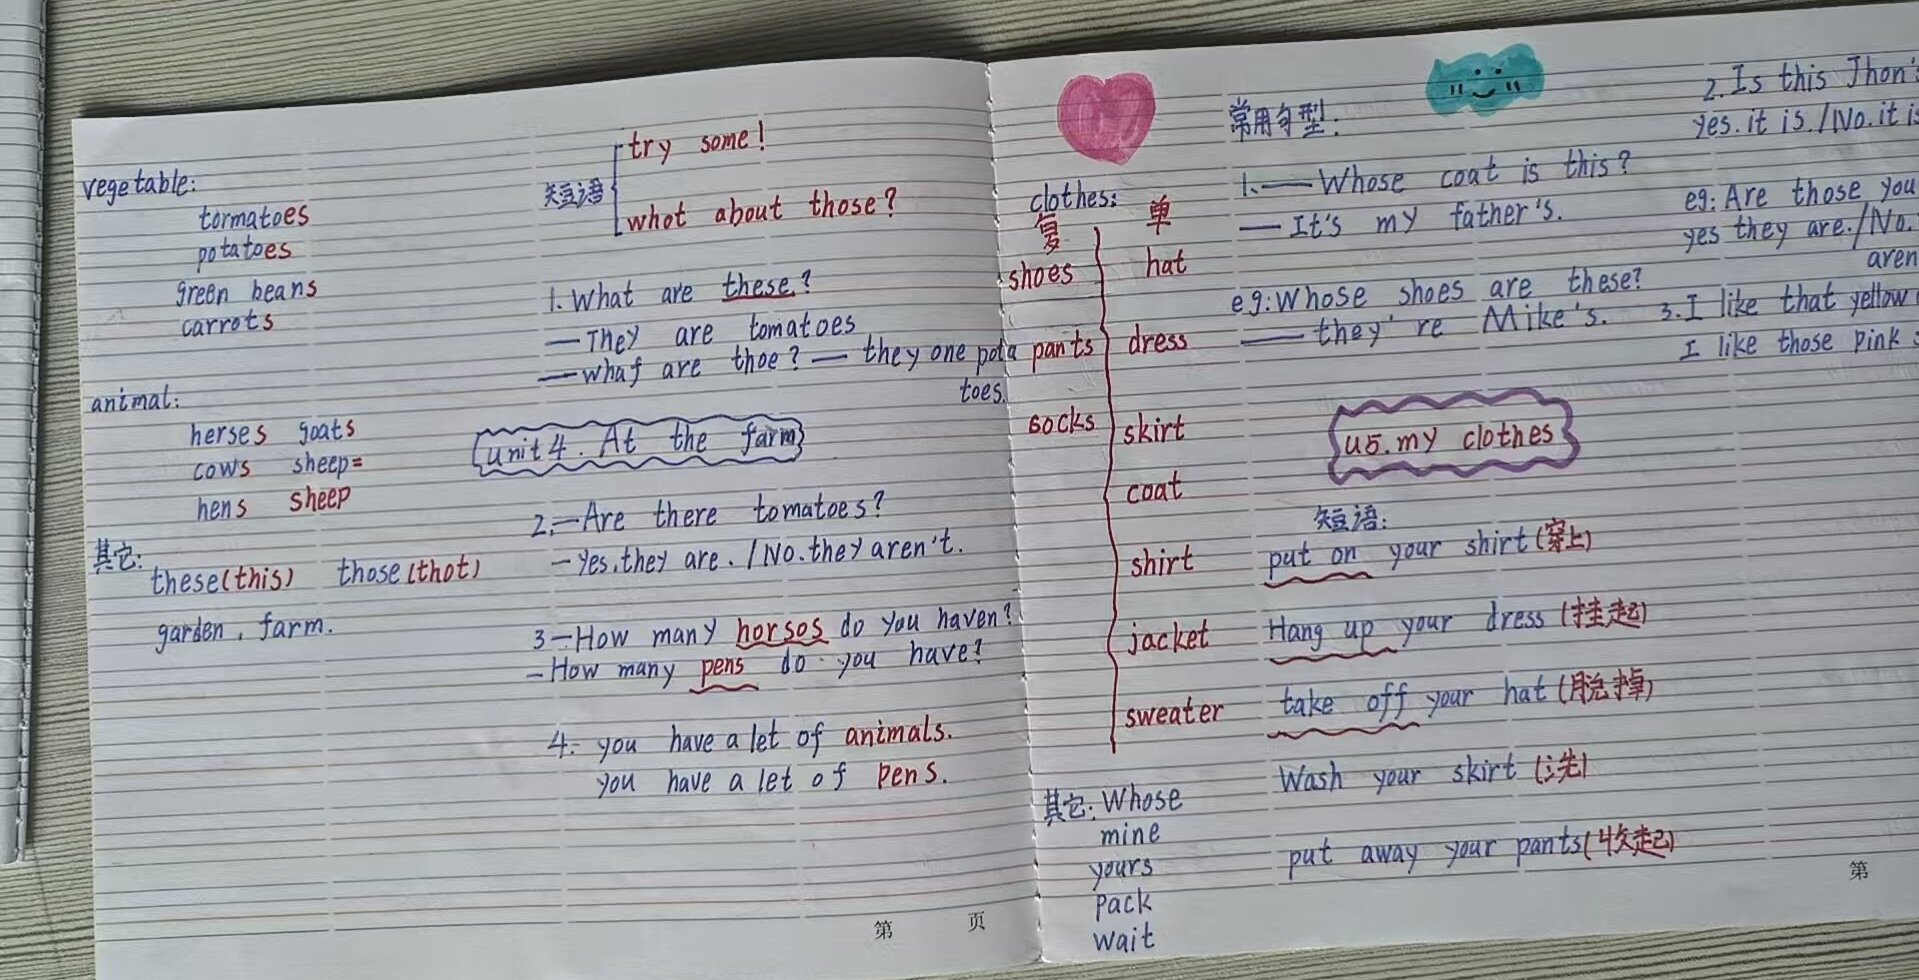 vegetable:
tormatoes
potatoes
green beans
carrots
animal:
herses goats
cows sheep=
hens sheep
其它:
these(this) those(thot)
garden, farm.
短语
try some!
whot about those?
1. What are these?
—They are tomatoes
—whaf are thoe? — they one pota
toes.
unit 4. At the farm
2.—Are there tomatoes?
—Yes, they are. / No. they aren't.
3—How many horsos do you haven?
—How many pens do you have?
4. you have a let of animals.
you have a let of pens.
第 页
clothes:
复 单
shoes hat
pants dress
socks skirt
coat
shirt
jacket
sweater
其它: Whose
mine
yours
pack
wait
常用句型:
1.—Whose coat is this?
—It's my father's.
eg: Whose shoes are these?
—they're Mike's.
2. Is this Jhon's
yes. it is. / No. it is
eg: Are those you
yes they are. / No.
aren
3. I like that yellow
I like those pink
u5. my clothes
短语:
put on your shirt (穿上)
Hang up your dress (挂起)
take off your hat (脱掉)
Wash your skirt (洗)
put away your pants (收起)
第